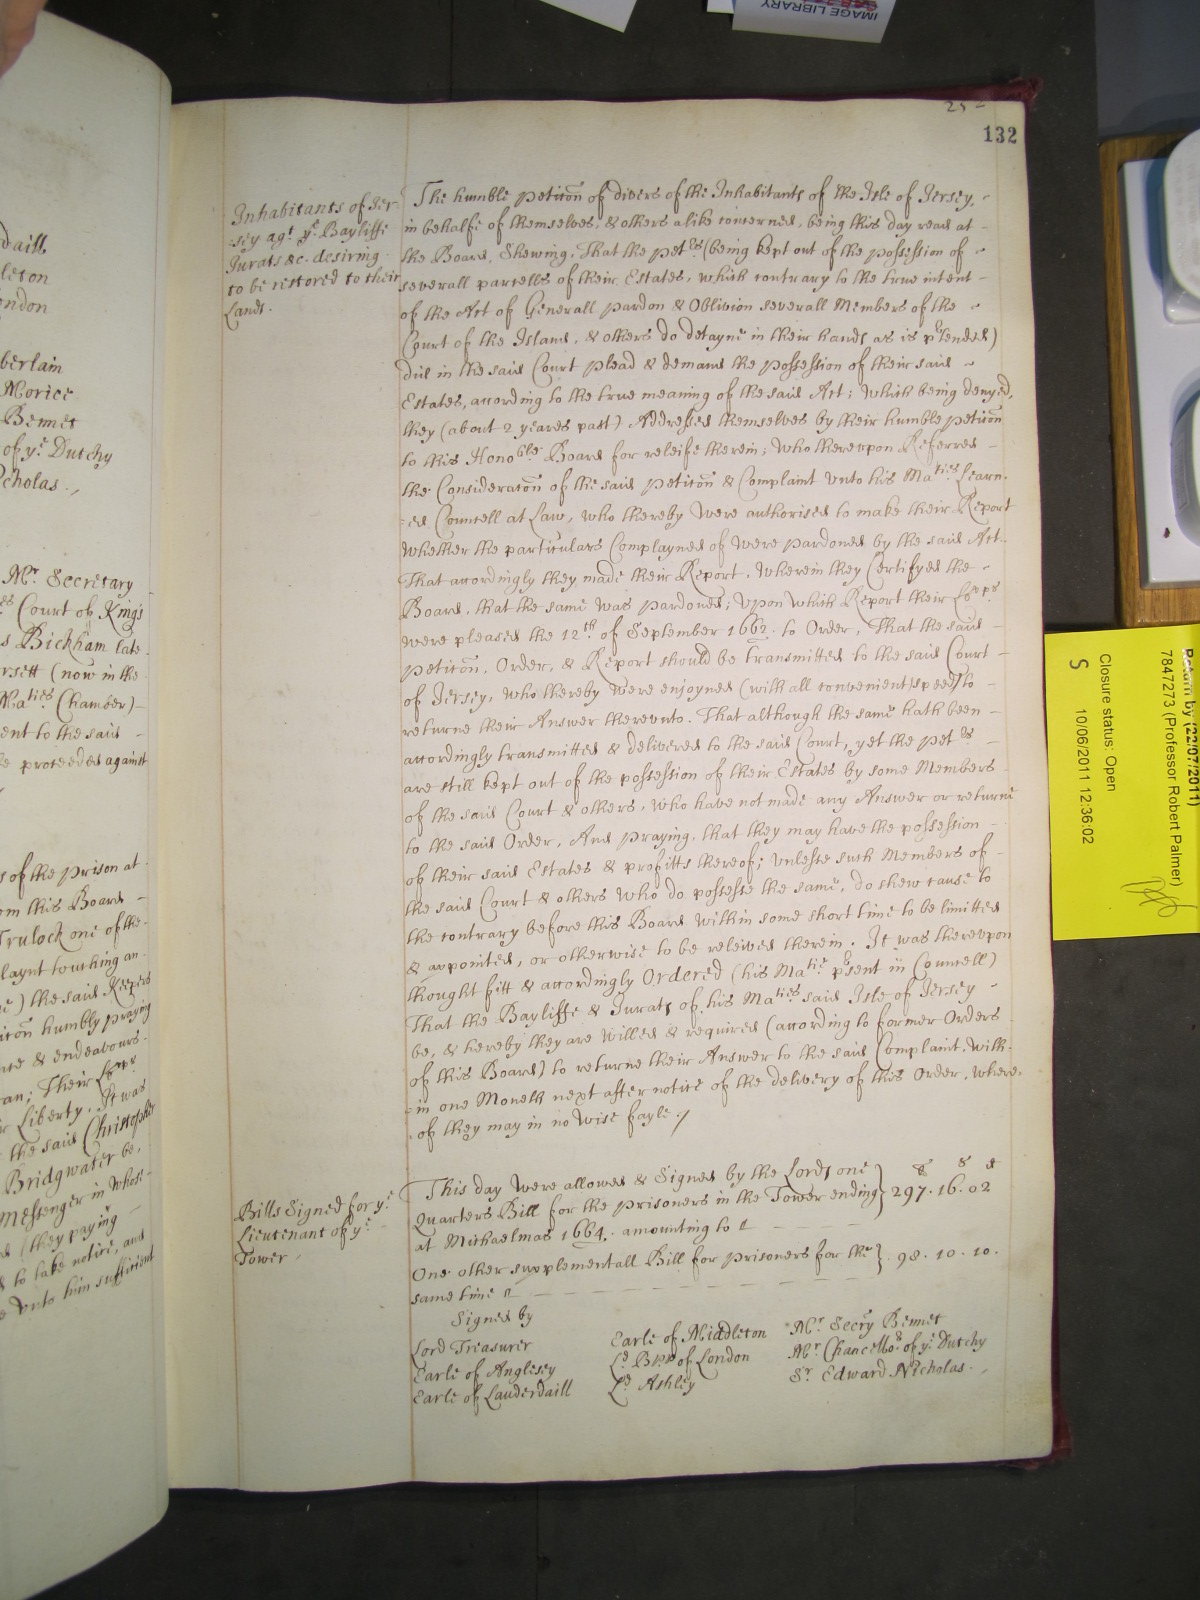 IMAGE LIBRARY
25
132
daill
leton
ondon
berlain
Morice
Bennet
of yᵉ Dutchy
cholas.,
Mʳ Secretary
Court of Kings
s Bickham late
rsett (now in the
Maᵗⁱᵉˢ Chamber)
ent to the said
e proceeded against
s of the prison at
om this Board
Trulock one of the
laynt touching an
) the said Keepers
humbly praying
& endeavours
an; Their Loᵖᵖˢ
Liberty. It was
the said Christopher
Bridgwater be,
Messenger in whose
(they paying
to take notice, and
unto him sufficient
Inhabitants of Jer-
-sey agᵗ yᵉ Bayliffe
Jurats &c. desiring
to be restored to their
Lands.
The humble petic̄on of divers of the Inhabitants of the Isle of Jersey,
in behalfe of themselves, & others alike concerned, being this day read at
the Board, Shewing, That the petʳˢ (being kept out of the possession of
severall parcells of their Estates, which contrary to the true intent
of the Act of Generall pardon & Oblivion severall Members of the
Court of the Island, & others do detayne in their hands as is pʳtended)
did in the said Court plead & demand the possession of their said
Estates, according to the true meaning of the said Act; which being denyed,
they (about 2 yeares past) Addressed themselves by their humble petic̄on
to this Honoᵇˡᵉ Board for releife therein; Who thereupon Referred
the Considerac̄on of the said petic̄on & Complaint unto his Maᵗⁱᵉˢ Learn-
=ed Councell at Law, who thereby were authorised to make their Report
whether the particulars Complayned of were pardoned by the said Act.
That accordingly they made their Report, wherein they Certifyed the
Board, that the same was pardoned; upon which Report their Loᵖᵖˢ
were pleased the 12ᵗʰ of September 1662. to Order, That the said
petic̄on, Order, & Report should be transmitted to the said Court
of Jersey, who thereby were enjoyned (with all convenient speed) to
returne their Answer thereunto. That although the same hath been
accordingly transmitted & delivered to the said Court, yet the petʳˢ
are still kept out of the possession of their Estates by some Members
of the said Court & others, who have not made any Answer or returne
to the said Order, And praying, that they may have the possession
of their said Estates & profitts thereof; unlesse such Members of
the said Court & others who do possesse the same, do shew cause to
the contrary before this Board within some short time to be limitted
& appointed, or otherwise to be releived therein. It was thereupon
thought fitt & accordingly Ordered (his Maᵗⁱᵉ pʳsent in Councell)
That the Bayliffe & Jurats of his Maᵗⁱᵉˢ said Isle of Jersey
be, & hereby they are willed & required (according to former Orders
of this Board) to returne their Answer to the said Complaint, with-
=in one Moneth next after notice of the delivery of this Order, where-
of they may in no wise fayle./
Bills Signed for yᵉ
Lieutenant of yᵉ
Tower.
This day were allowed & Signed by the Lords one } £ s d
Quarters Bill for the prisoners in the Tower ending } 297. 16. 02
at Michaelmas 1664. amounting to
One other supplementall Bill for prisoners for the } 98. 10. 10.
same time
Signed by
Lord Treasurer
Earle of Anglesey
Earle of Lauderdaill
Earle of Middleton
Lᵈ Bpp of London
Lᵈ Ashley
Mʳ Secry Bennet
Mʳ Chancelloʳ of yᵉ Dutchy
Sʳ Edward Nicholas.
Return by (22/07/2011)
7847273 (Professor Robert Palmer)
Closure status: Open
S 10/06/2011 12:36:02